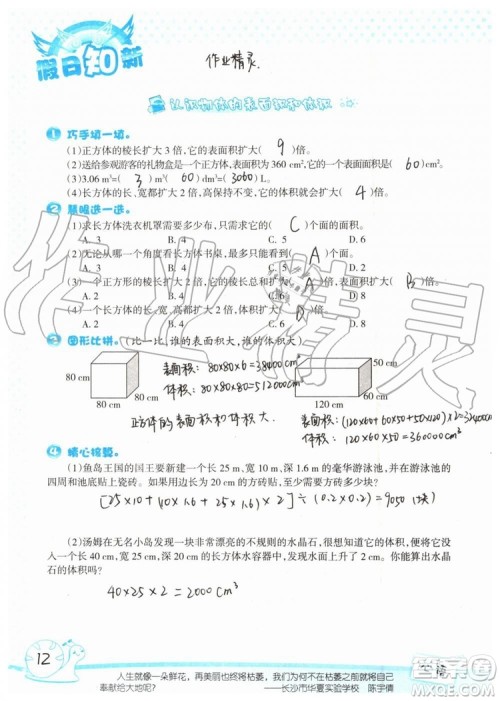 假日知新
作业精灵.
认识物体的表面积和体积
1 巧手填一填。
(1)正方体的棱长扩大 3 倍,它的表面积扩大( 9 )倍。
(2)送给参观游客的礼物盒是一个正方体,表面积为 360 cm²,它的一个面的面积是( 60 )cm²。
(3)3.06 m³=( 3 )m³( 60 )dm³=( 3060 )L。
(4)长方体的长、宽都扩大 2 倍,高保持不变,它的体积就会扩大( 4 )倍。
2 慧眼选一选。
(1)求长方体洗衣机罩需要多少布,只需求它的( C )个面的面积。
A. 3 B. 4 C. 5 D. 6
(2)无论从哪一个角度看长方体书桌,最多看到它的( A )个面。
A. 3 B. 4 C. 5 D. 2
(3)一个正方体的棱长扩大 2 倍,它的棱长总和扩大( A )倍,体积扩大( B )倍。
(4)
A. 2 B. 4 C. 6 D. 8
3 图形比拼。(比一比,谁的表面积大,谁的体积大。)
80 cm
80 cm
80 cm
表面积: 80×80×6=38400cm²
体积: 80×80×80=512000cm³
50 cm
120 cm
60 cm
正方体的表面积和体积大.
表面积: (120×60+60×50+50×120)×2=32400cm²
体积: 120×60×50=360000cm³
4 精心接算。
(1)鱼岛王国的国王要新建一个长 25 m,宽 10 m,深 1.6 m 的豪华游泳池,并在游泳池的
四周和池底贴瓷砖。如果用边长为 20 cm 的方砖铺贴,至少需要方砖多少块?
[25×10+(10×1.6+25×1.6)×2]÷(0.2×0.2)=9050(块)
(2)汤姆在无名小岛发现一块非常漂亮的不规则的水晶石,很想知道它的体积,将它放进
一个长 40 cm,宽 25 cm,高 20 cm 的长方体水容器中,发现水上升了 2 cm。你能算出水晶
石的体积吗?
40×25×2=2000cm³
12
人生就像一朵鲜花,再美丽也终将枯萎,我们为何不在枯萎之前将自己
奉献给大地呢? ——长沙市华夏实验学校 陈宇倩
作业精灵